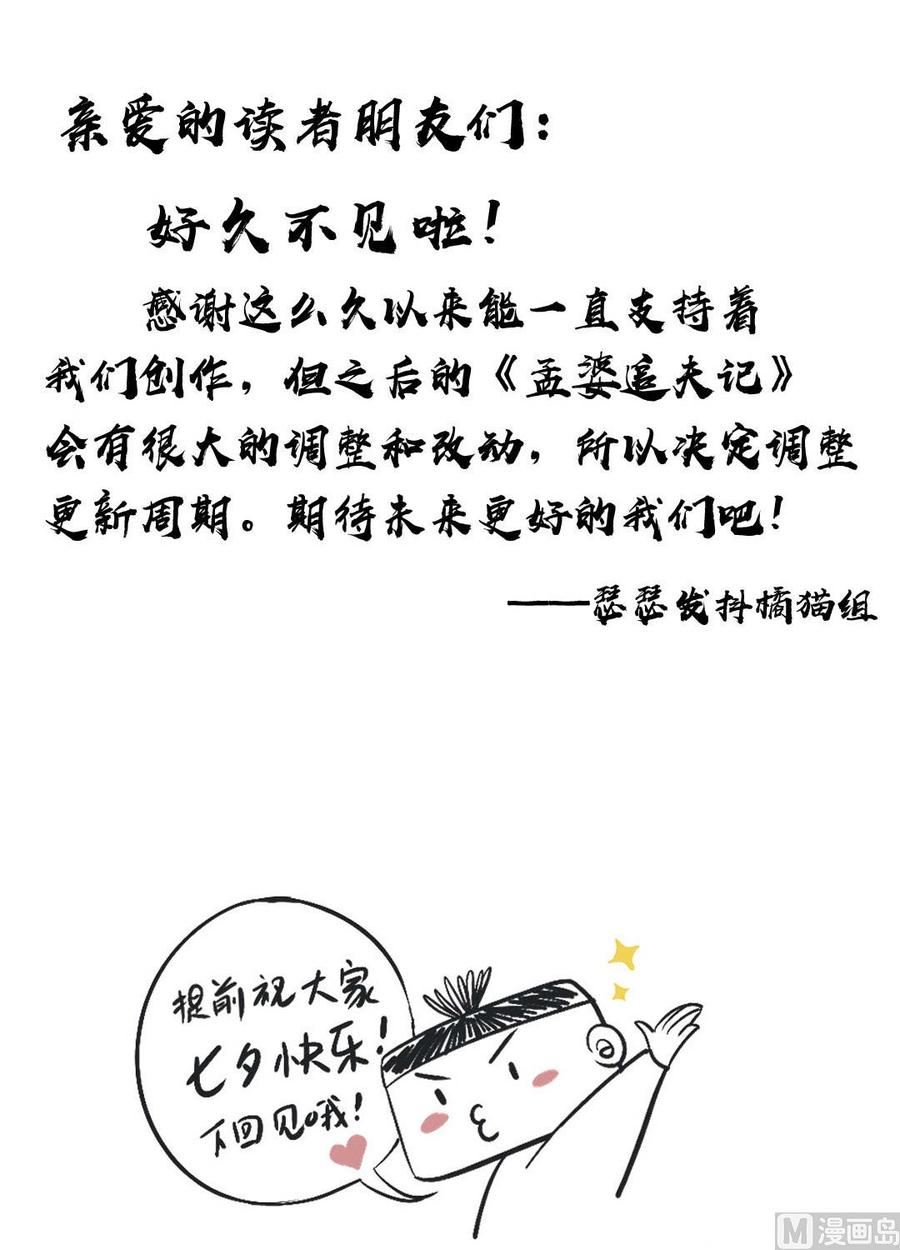 亲爱的读者朋友们：
好久不见啦！
感谢这么久以来能一直支持着
我们创作，但之后的《孟婆追夫记》
会有很大的调整和改动，所以决定调整
更新周期。期待未来更好的我们吧！
——瑟瑟发抖橘猫组
提前祝大家
七夕快乐！
下回见哦！
M漫画岛